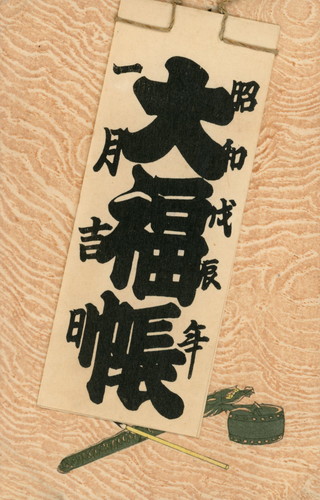 昭和戊辰年
大福帳
一月吉日